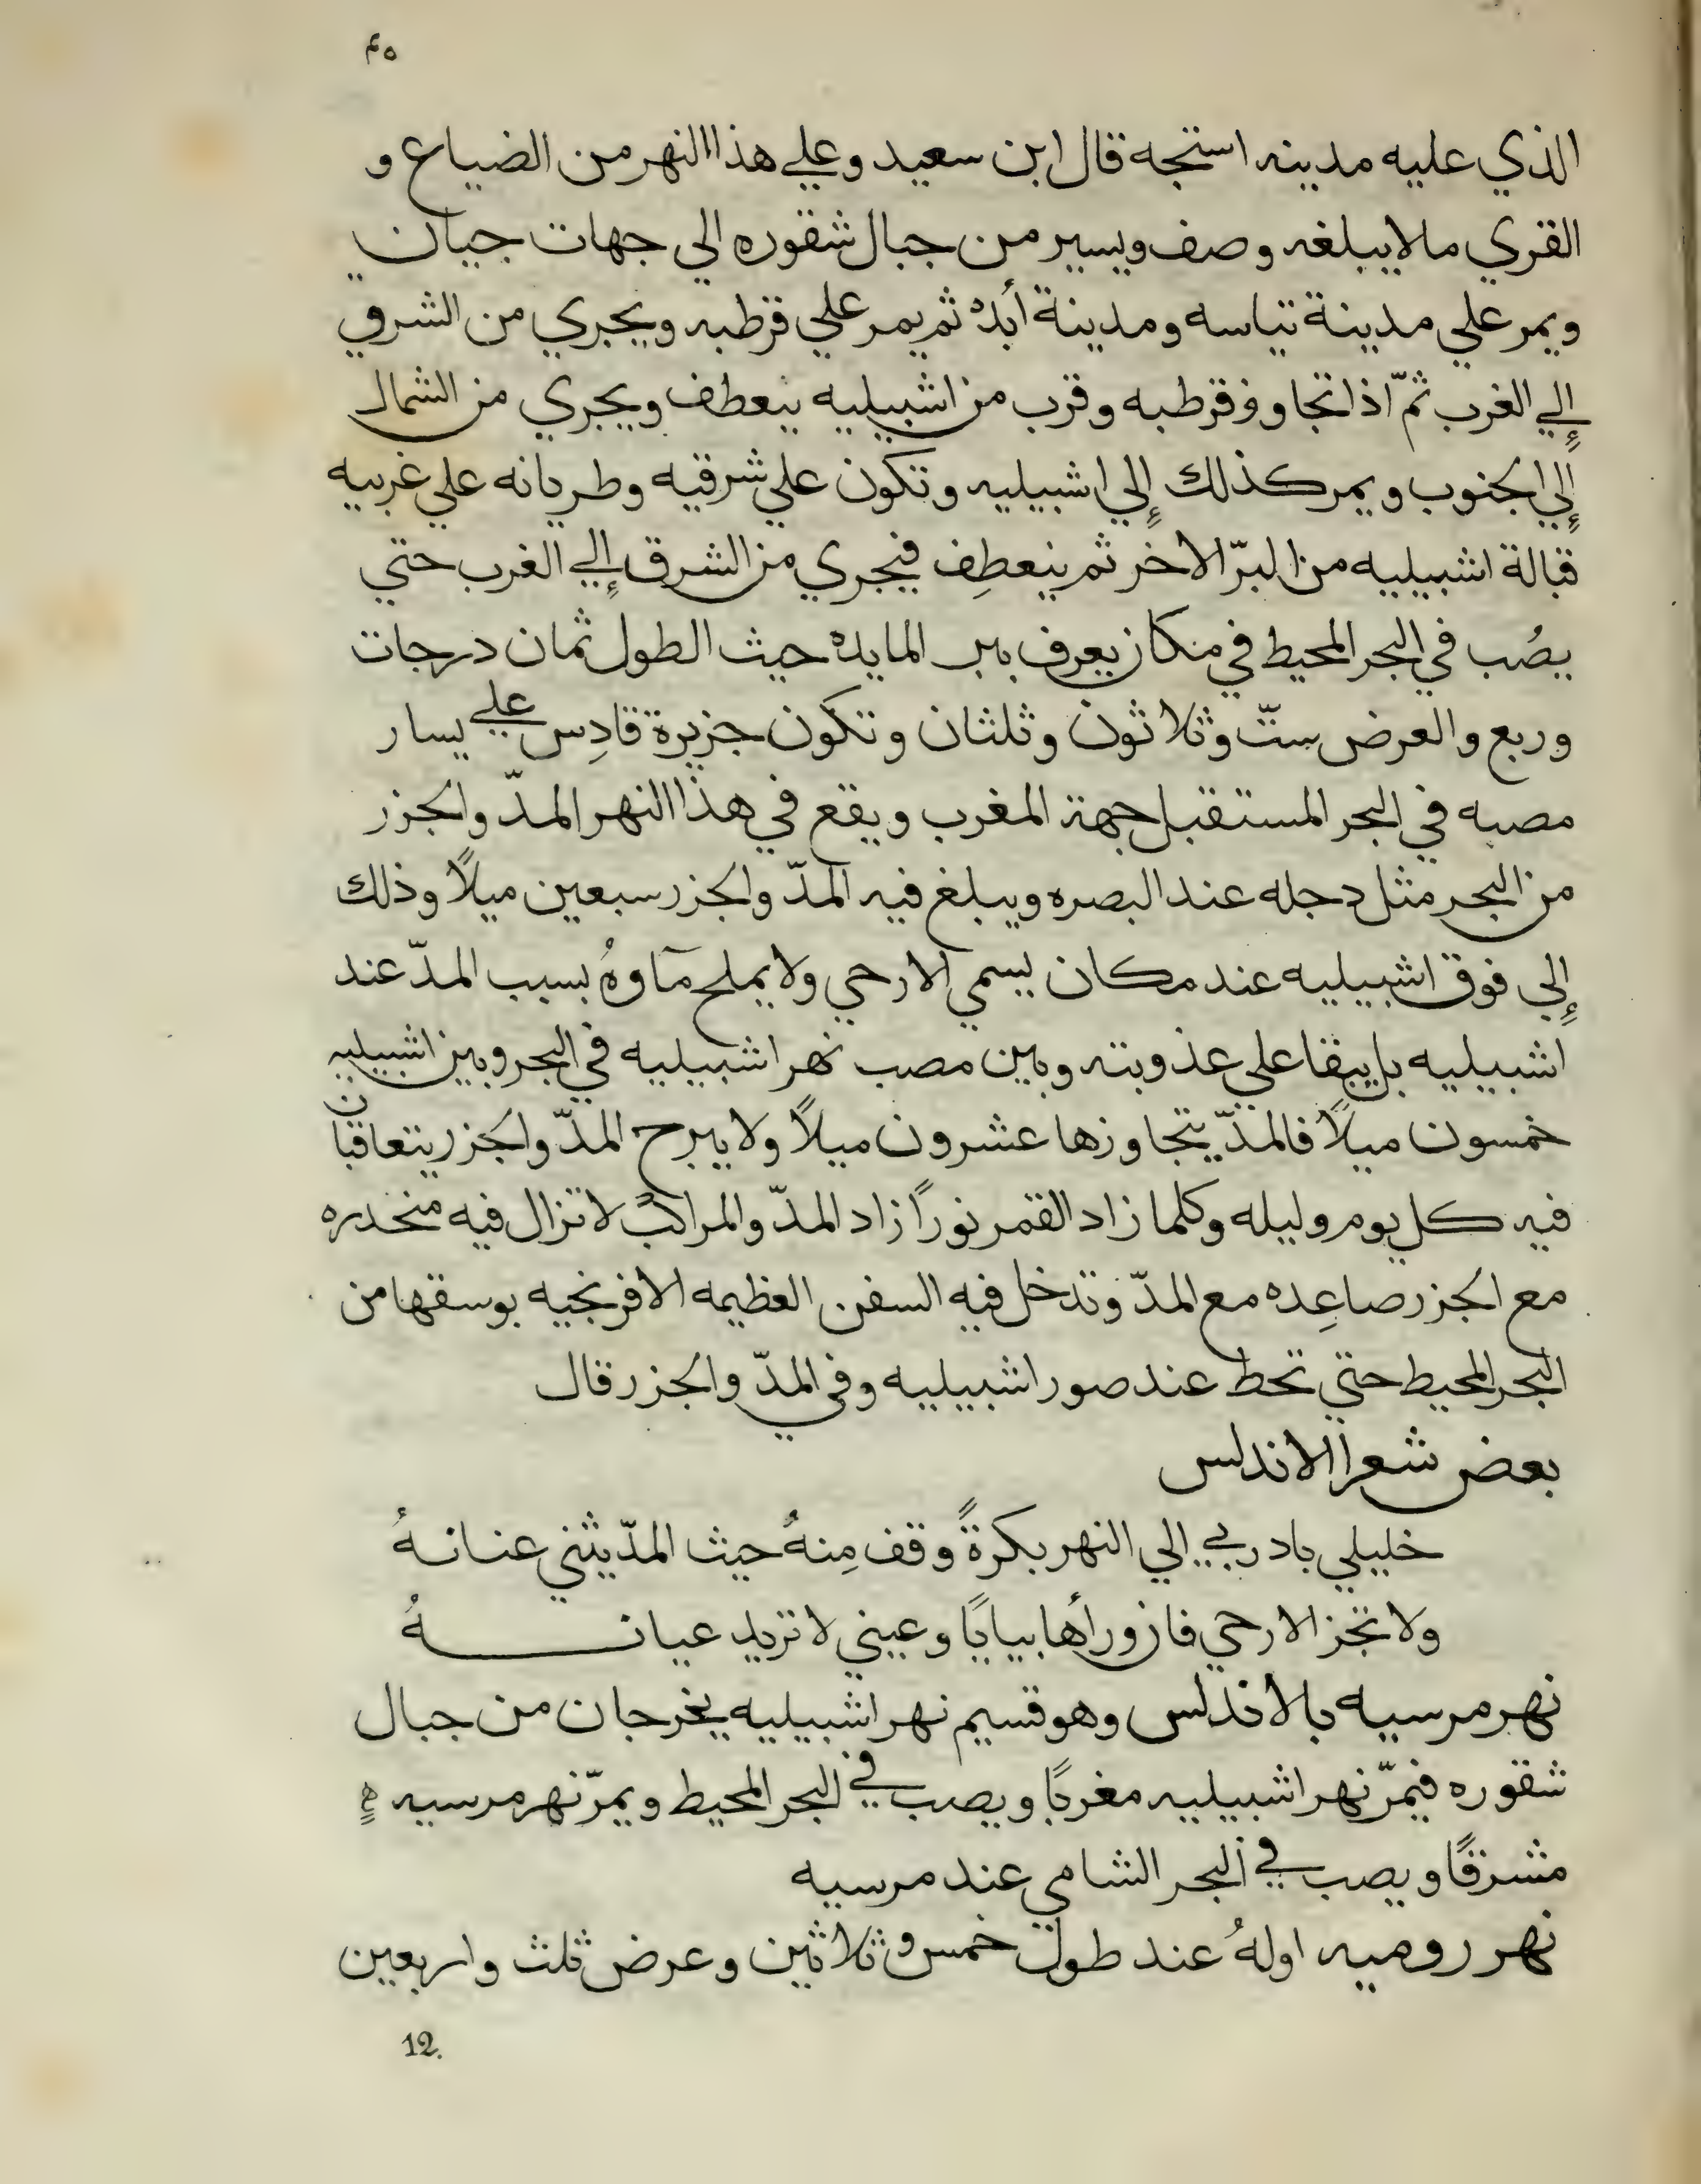 ٤٥
الذي عليه مدينه استجه قال ابن سعيد وعلي هذا النهر من الضياع و
القري ما لا يبلغه وصف ويسير من جبال شقوره الي جهات جيان
ويمر علي مدينة تياسه ومدينة أبده ثم يمر علي قرطبه ويجري من الشرق
إلي الغرب ثمّ اذا تجاوز قرطبه وقرب من اشبيليه ينعطف ويجري من الشمال
إلي الجنوب ويمر كذلك إلي اشبيليه وتكون علي شرقيه وطريانه علي غربيه
قبالة اشبيليه من البرّ الاخر ثم ينعطِف فيجري من الشرق إلي الغرب حتي
يصُب في البحر المحيط في مكان يعرف ببر المايده حيث الطول ثمان درجات
وربع والعرض ستّ وثلاثون وثلثان وتكون جزيرة قادِس علي يسار
مصبه في البحر المستقبل جهة المغرب ويقع في هذا النهر المدّ والجزر
من البحر مثل دجله عند البصره ويبلغ فيه المدّ والجزر سبعين ميلاً وذلك
إلي فوق اشبيليه عند مكان يسمي الارحي ولا يملح مآوهُ بسبب المدّ عند
اشبيليه بل يبقا علي عذوبته وبين مصب نهر اشبيليه في البحر وبين اشبيليه
خمسون ميلاً فالمدّ يتجاوزها عشرون ميلاً ولا يبرح المدّ والجزر يتعاقبان
فيه كل يوم وليله وكلما زاد القمر نوراً زاد المدّ والمراكب لا تزال فيه منحدره
مع الجزر صاعِده مع المدّ وتدخل فيه السفن العظيمه الافرنجيه بوسقها من
البحر المحيط حتي تحط عند صور اشبيليه وفي المدّ والجزر قال
بعض شعرا الاندلس
خليلي بادر بي الي النهر بكرةً وقف مِنهُ حيث المدّ يثني عنانهُ
ولا تجز الارحي فان ورأها بيابًا وعيني لا تريد عيانهُ
نهر مرسيه بالاندلس وهو قسيم نهر اشبيليه يخرجان من جبال
شقوره فيمرّ نهر اشبيليه مغربًا ويصب في البحر المحيط ويمرّ نهر مرسيه
مشرقًا ويصب في البحر الشامي عند مرسيه
نهر روميه اولهُ عند طول خمس وثلاثين وعرض ثلث واربعين
12.